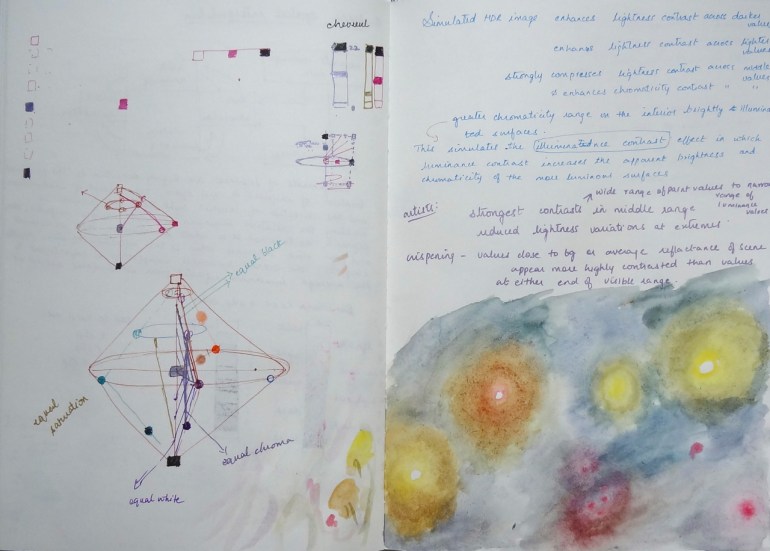 cheveul
equal black
equal saruation
equal chroma
equal white
Simulated HDR image enhances lightness contrast across darker values
enhances lightness contrast across lighter values
strongly compresses lightness contrast across middle values
& enhances chromaticity contrast " "
greater chromaticity range on the interior brightly & illumina
ted surfaces.
This simulates the illuminance contrast effect in which
luminance contrast increases the apparent brightness and
chromaticity of the more luminous surfaces
wide range of paint values to narrow range of luminance values
artists: strongest contrasts in middle range
reduced lightness variations at extremes.
crispening - values close to bg or average reflectance of scene
appear more highly contrasted than values
at either end of visible range.